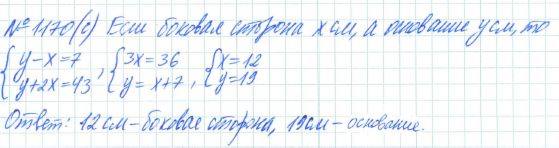 № 1170(с) Если боковая сторона x см, а основание y см, то
{y-x=7, {3x=36, {x=12
{y+2x=43, {y=x+7, {y=19
Ответ: 12 см – боковая сторона, 19 см – основание.